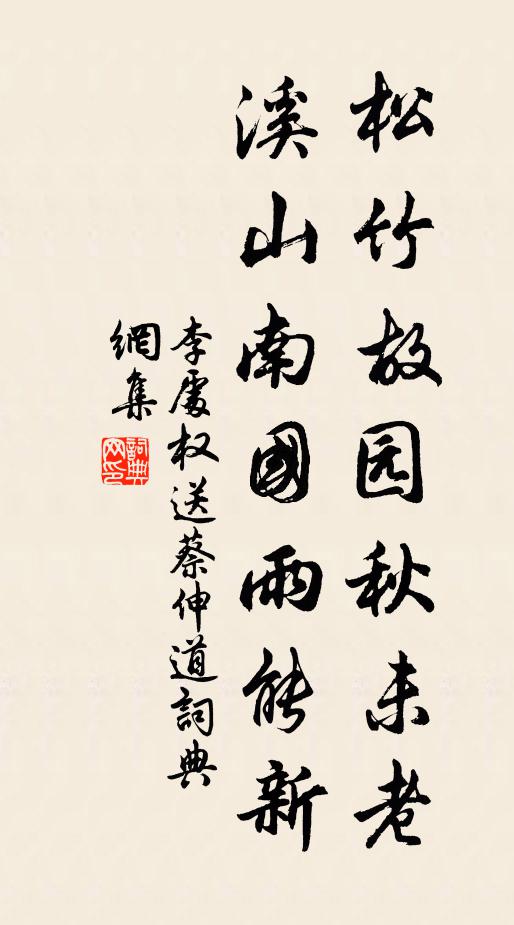 松竹故园秋未老
溪山南國雨能新
李處权送蔡伸道詞典
網集
詞典网印